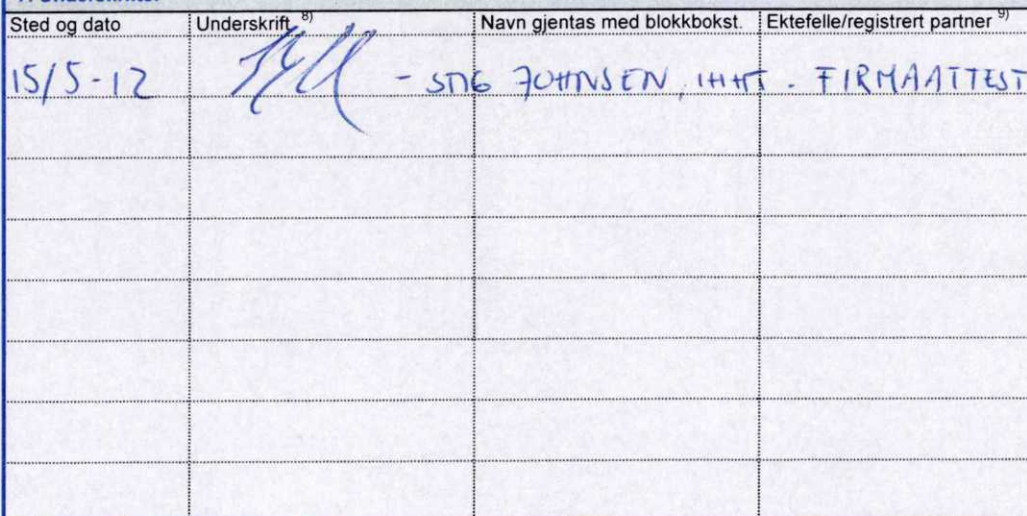 Sted og dato Underskrift 8) Navn gjentas med blokkbokst. Ektefelle/registrert partner 9)
15/5-12 - STIG JOHNSEN, IHHT. FIRMAATTEST